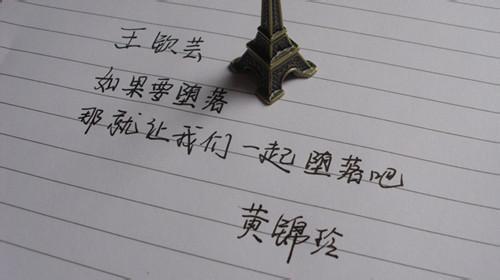 王欧芸
如果要堕落
那就让我们一起堕落吧
黄锦玲